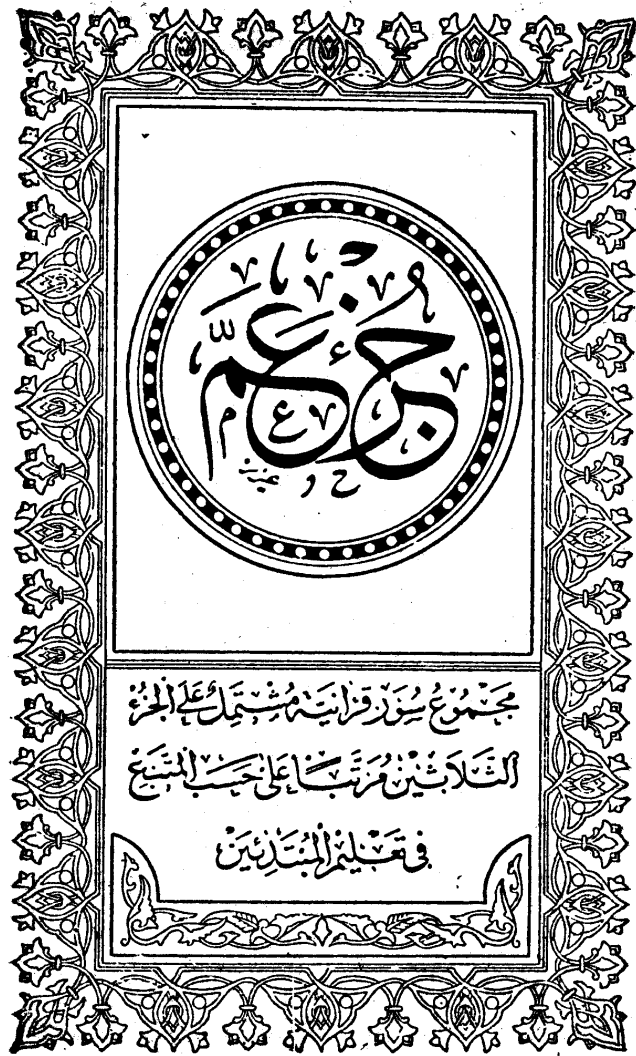 جُزْءُ عَمَّ
مَجْمُوعُ سُوَرٍ قُرْآنِيَّة مُشْتَمِلٌ عَلَى الْجُزْءِ
الثَّلَاثِيْنَ مُرَتَّبًا عَلَى حَسَبِ الْمُتَّبَعِ
فِي تَعْلِيْمِ الْمُبْتَدِئِيْنَ